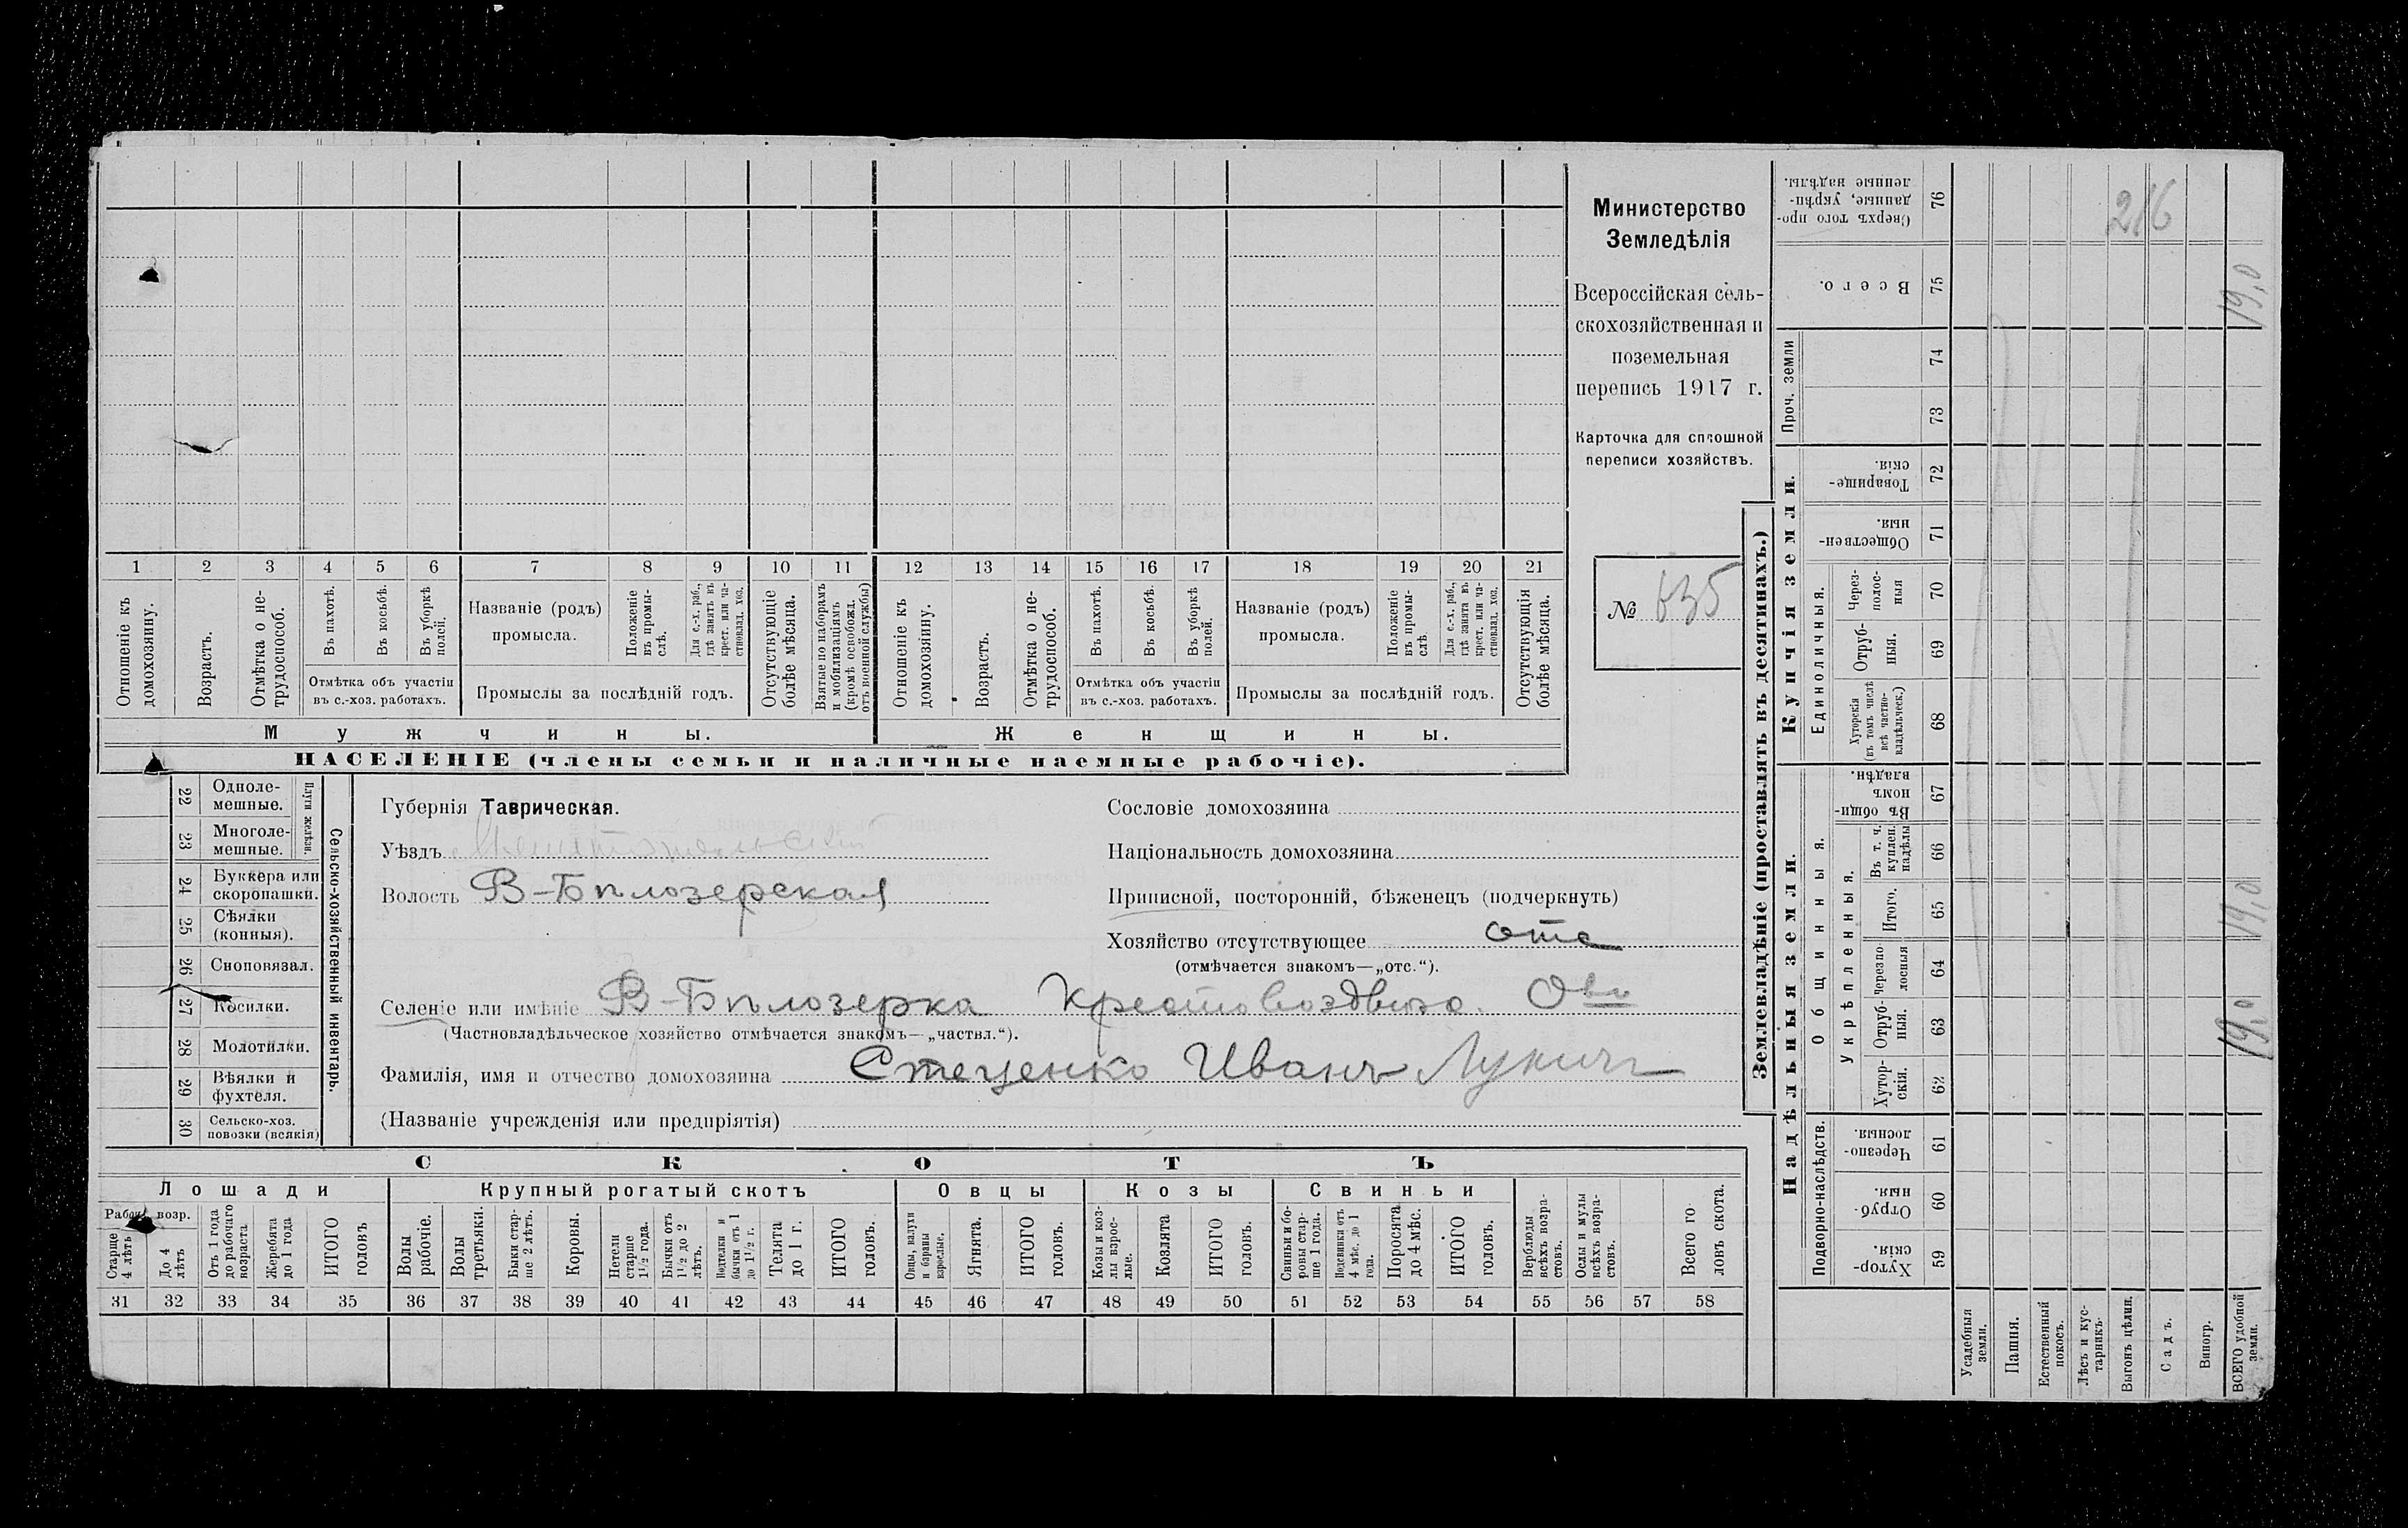 Министерство
Земледѣлія
Всероссійская сель-
скохозяйственная и
поземельная
перепись 1917 г.
Карточка для сплошной
переписи хозяйствъ.
№ 635
1 2 3 4 5 6 7 8 9 10 11 12 13 14 15 16 17 18 19 20 21
Отношеніе къ домохозяину.
Возрастъ.
Отмѣтка о не-трудоспособ.
Въ пахотѣ.
Въ косьбѣ.
Въ уборкѣ полей.
Отмѣтка объ участіи
въ с.-хоз. работахъ.
Названіе (родъ)
промысла.
Положеніе въ промы-слѣ.
Для с.-х. раб., гдѣ занятъ въ крест. или ча-стновлад. хоз.
Промыслы за послѣдній годъ.
Отсутствующіе болѣе мѣсяца.
Взятые по наборамъ и мобилизаціямъ (кромѣ освобожд. отъ военной службы)
Отношеніе къ домохозяину.
Возрастъ.
Отмѣтка о не-трудоспособ.
Въ пахотѣ.
Въ косьбѣ.
Въ уборкѣ полей.
Отмѣтка объ участіи
въ с.-хоз. работахъ.
Названіе (родъ)
промысла.
Положеніе въ промы-слѣ.
Для с.-х. раб., гдѣ занята въ крест. или ча-стновлад. хоз.
Промыслы за послѣдній годъ.
Отсутствующія болѣе мѣсяца.
Мужчины. Женщины.
НАСЕЛЕНІЕ (члены семьи и наличные наемные рабочіе).
22 Одноле-мешные.
23 Многоле-мешные.
Плуги желѣзн.
24 Буккера или скоропашки.
25 Сѣялки (конныя).
26 Сноповязал.
27 Косилки.
28 Молотилки.
29 Вѣялки и фухтеля.
30 Сельско-хоз. повозки (всякія)
Сельско-хозяйственный инвентарь.
Губернія Таврическая.
Уѣздъ Мелитопольскій
Волость В-Бѣлозерская
Сословіе домохозяина
Національность домохозяина
Приписной, посторонній, бѣженецъ (подчеркнуть)
Хозяйство отсутствующее отс
(отмѣчается знакомъ—„отс.“).
Селеніе или имѣніе В-Бѣлозерка Крестовоздвиж. О-во
(Частновладѣльческое хозяйство отмѣчается знакомъ—„частвл.“).
Фамилія, имя и отчество домохозяина Стеценко Иванъ Лукичъ
(Названіе учрежденія или предпріятія)
СКОТЪ
Лошади Крупный рогатый скотъ Овцы Козы Свиньи
Рабоч. возр.
Старше 4 лѣтъ
До 4 лѣтъ
Отъ 1 года до рабочаго возраста
Жеребята до 1 года
ИТОГО головъ
Волы рабочіе.
Волы третьяки.
Быки стар-ше 2 лѣтъ.
Коровы.
Нетели старше 1 1/2 года.
Бычки отъ 1 1/2 до 2 лѣтъ.
Подтелки и бычки отъ 1 до 1 1/2 г.
Телята до 1 г.
ИТОГО головъ.
Овцы, валухи и бараны взрослые.
Ягнята.
ИТОГО головъ.
Козы и коз-лы взрос-лые.
Козлята
ИТОГО головъ.
Свиньи и бо-ровы стар-ше 1 года.
Подсвинки отъ 4 мѣс. до 1 года.
Поросята до 4 мѣс.
ИТОГО головъ.
Верблюды всѣхъ возра-стовъ.
Ослы и мулы всѣхъ возра-стовъ.
Всего го-ловъ скота.
31 32 33 34 35 36 37 38 39 40 41 42 43 44 45 46 47 48 49 50 51 52 53 54 55 56 57 58
Землевладѣніе (проставлять въ десятинахъ.)
Надѣльныя земли. Купчія земли. Проч. земли
Подворно-наслѣдств.
Общинныя.
Укрѣпленныя.
Единоличныя.
Хутор-скія. 59
Отруб-ныя. 60
Черезпо-лосныя. 61
Хутор-скія. 62
Отруб-ныя. 63
Черезпо-лосныя 64
Итого. 65
Въ т. ч. куплен. надѣлы 66
Въ общи-номъ владѣн. 67
Хуторскія (въ томъ числѣ всѣ частно-владѣльческ.) 68
Отруб-ныя. 69
Через-полос-ныя 70
Обществен-ныя. 71
Товарище-скія. 72
73
74
Всего. 75
Сверхъ того про-данные, укрѣп-ленные надѣлы. 76
Усадебныя земли.
Пашня.
Естественный покосъ.
Лѣсъ и кус-тарникъ.
Выгонъ цѣлин.
Садъ.
Виногр.
ВСЕГО удобной земли.
216
19,0
19,0
19,0